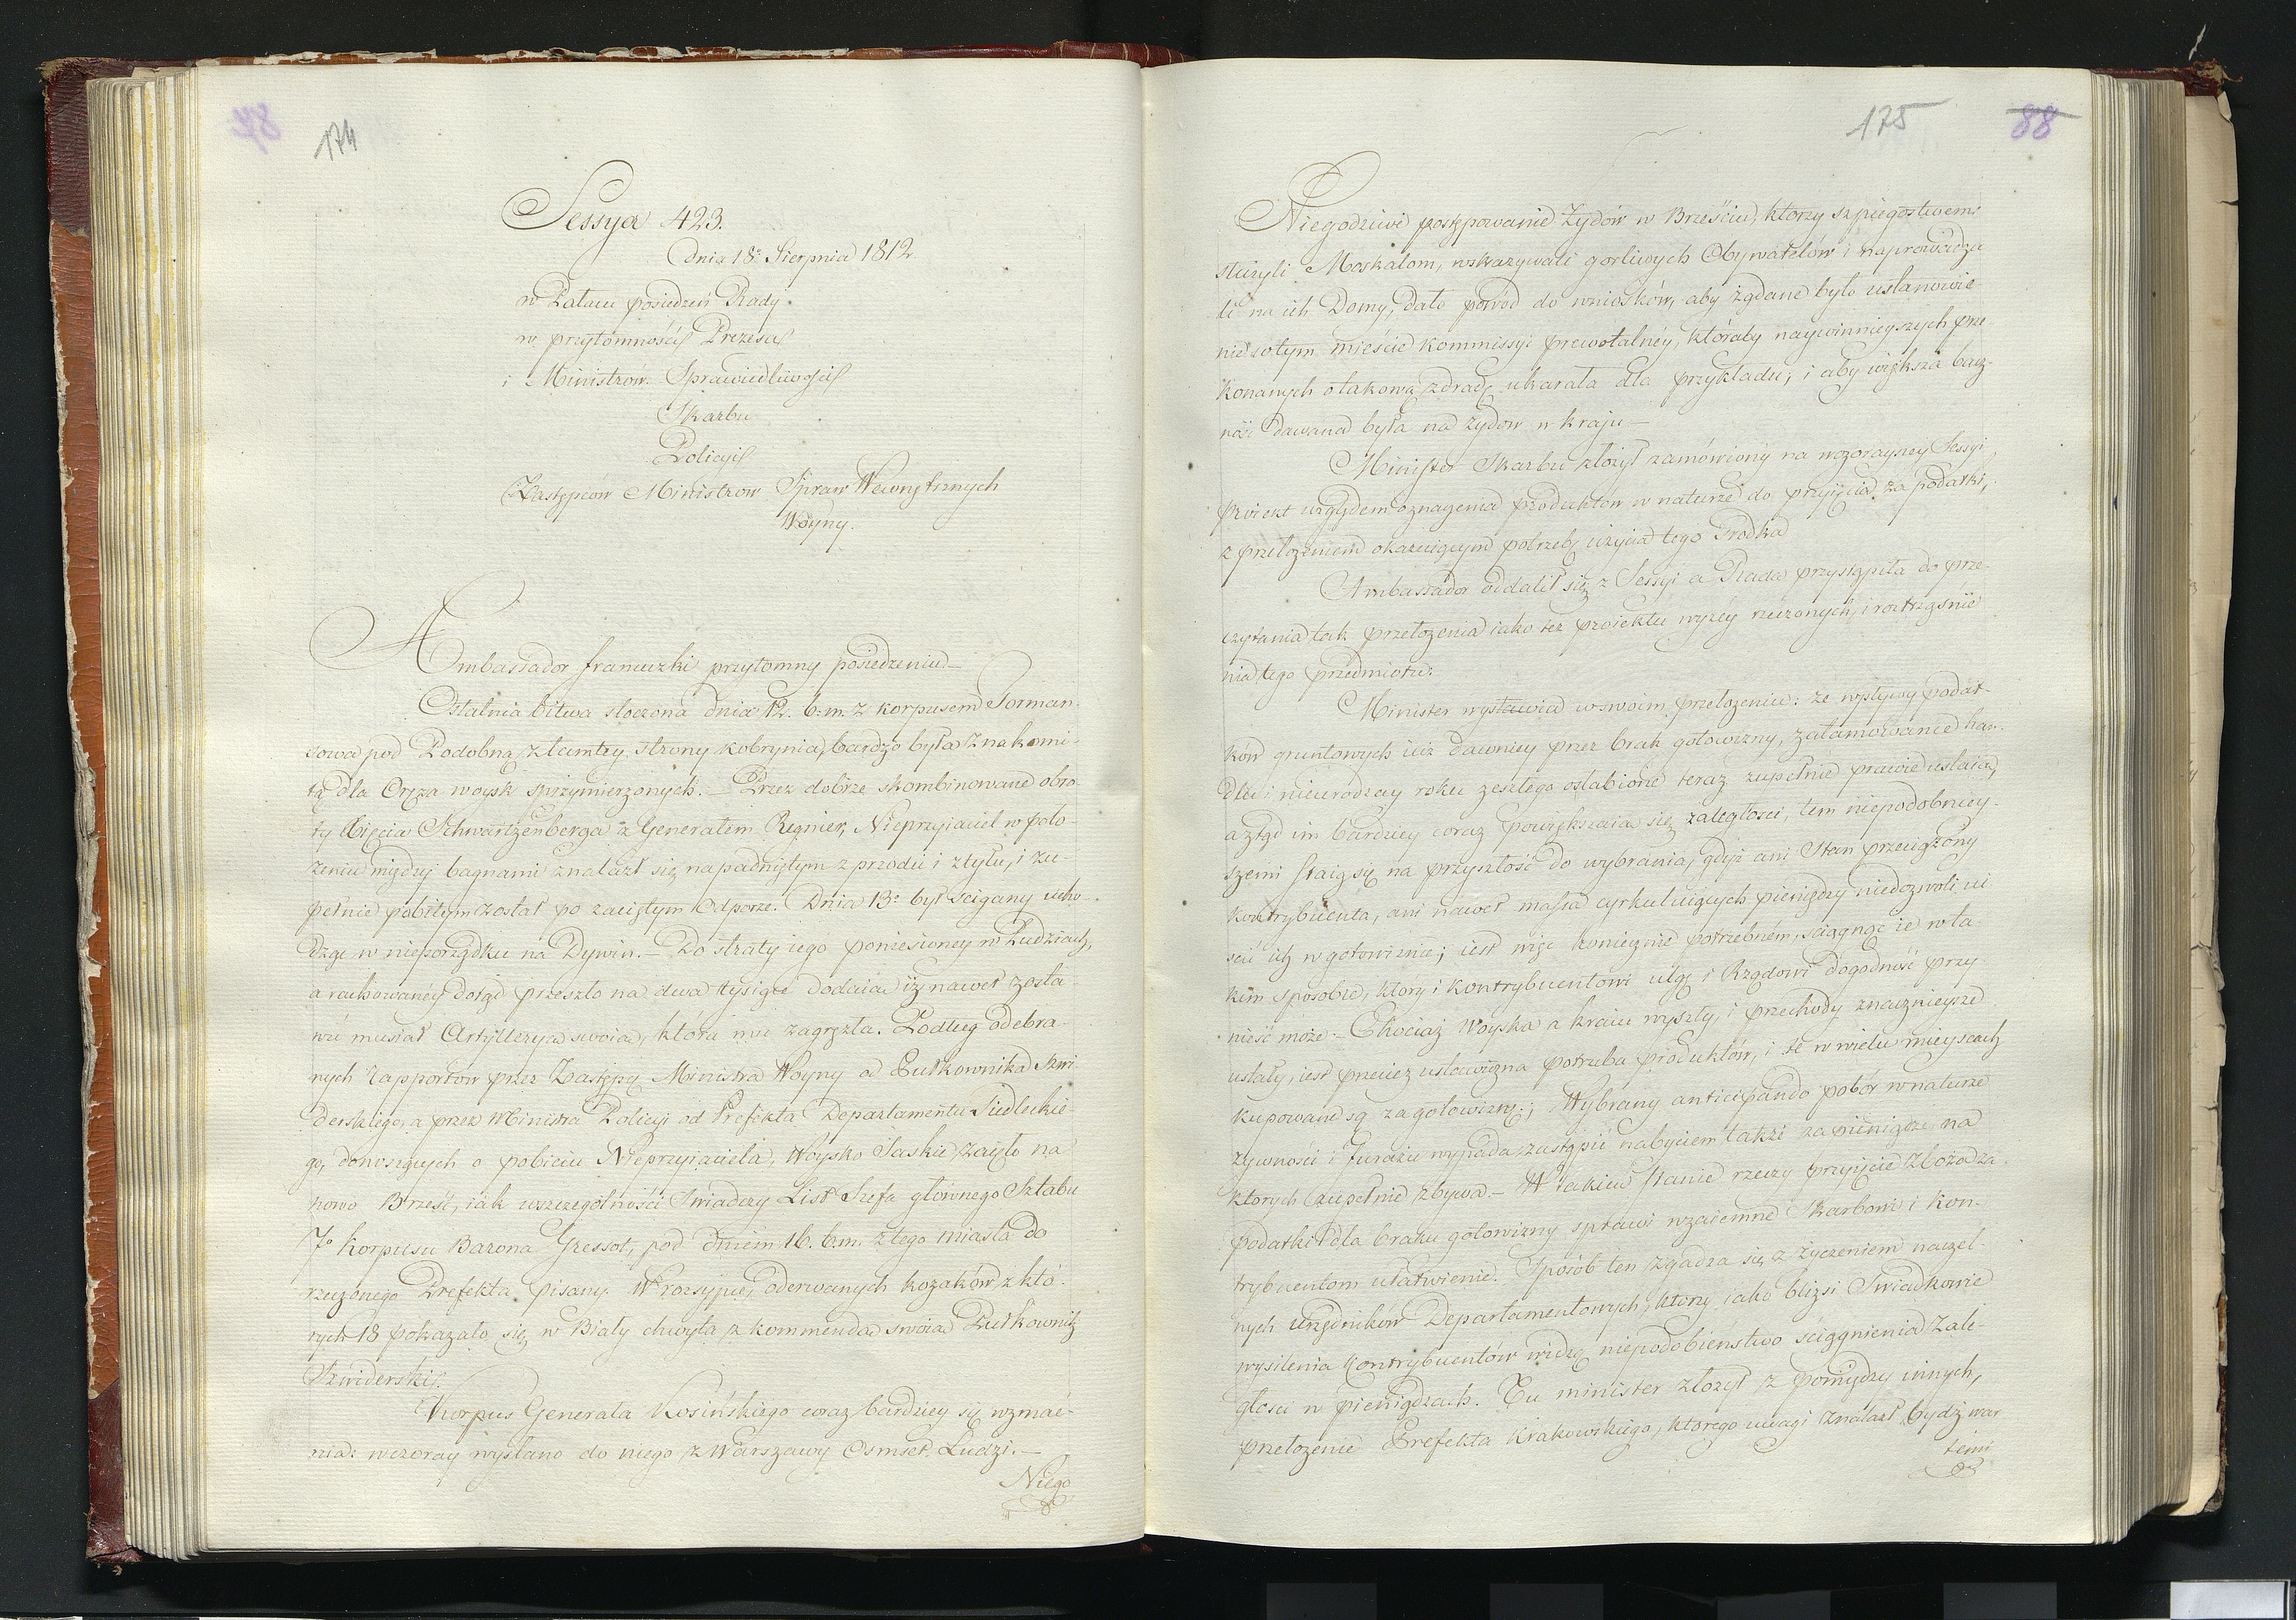 78
174
Sessya 423.
Dnia 18º Sierpnia 1812
w Pałacu posiedzeń Rady
w przytomności Prezesa
i Ministrów Sprawiedliwości
Skarbu
Policyi
Zastępców Ministrow Spraw Wewnętrznych
Woyny.
Ambassador francuzki przytomny posiedzeniu –
Ostatnia bitwa stoczona dnia 12. b: m. z korpusem Torman-
sowa pod Podobną z tamtey strony Kobrynia, bardzo była znakomi-
tą dla Oręża woysk sprzymierzonych. – Przez dobrze skombinowane obro-
ty Xięcia Schwartzenberga z Generałem Regnier, Nieprzyiaciel w poło-
żeniu między bagnami znalazł się napadniętym z przodu i z tyłu, i zu-
pełnie pobitym został po zaciętym Odporze. Dnia 13º był scigany ucho-
dząc w nieporządku na Dywin. – Do straty iego poniesioney w Ludziach,
a rachowanéy dotąd przeszło na dwa tysiące dodaia iż nawet zosta-
wić musiał Artylleryą swoia, ktora mu zagrzęzła. Podług odebra-
nych rapportow przez Zastępcę Ministra Woyny od Pułkownika Szwi-
derskiego, a przez Ministra Policyi od Prefekta Departamentu Siedleckie-
go, donoszących o pobiciu Nieprzyiaciela, Woysko Saskie zaięło na
nowo Brześć, iak wszczególności świadczy List Szefa głównego Sztabu
7º Korpusu Barona Gressot, pod dniem 16. b. m. z tego miasta do
rzeczonego Prefekta pisany. W rozsypce, oderwanych kozaków z któ-
rych 18 pokazało się w Biały chwyta z kommendą swoią Pułkownik
Szwiderski.
Korpus Generała Kosińskiego coraz bardziey się wzmac-
nia: wczoray wysłano do niego z Warszawy Osmset Ludzi. –
Niego
175
88
Niegodziwe postępowanie Żydów w Brześciu, ktorzy szpiegostwem
służyli Moskalom, wskazywali gorliwych Obywatelów i naprowadza-
li na ich Domy, dało powód do wniosków, aby żądane było ustanowie-
nie w tym mieście kommissyi prewotalnéy, któraby naywinnieyszych prze-
konanych o takową zdradę ukarała dla przykładu, i aby większa bacz-
ność dawana była na żydow w kraju –
Minister Skarbu złożył zamówiony na wczorayszey Sessyi
proiekt względem oznaczenia produktow w naturze do przyięcia za podatki,
z przełożeniem okazuiącym potrzebę użycia tego środka
Ambassador oddalił się z Sessyi a Rada przystąpiła do prze-
czytania tak przełożenia iako też proiektu wyżey rzeczonych, i roztrząśnie-
nia tego przedmiotu:
Minister wystawia w swoim przełożeniu: że wpływy podat-
ków gruntowych iuż dawniey przez brak gotowizny, zatamowanie han-
dlu i nieurodzay roku zeszłego osłabione teraz zupełnie prawie ustaia,
a ztąd im bardziey coraz powiększaia się zaległości, tem niepodobniey-
szemi staią się na przyszłość do wybrania, gdyż ani Stan przeciążony
kontrybuenta, ani nawet massa cyrkuluiących pieniędzy niedozwoli ui-
ścić ich w gotowiznie; iest więc koniecznie potrzebném, sciągnąć ie w ta-
kim sposobie, który i kontrybuentowi ulgę i Rządowi dogodność przy-
nieść może – Chociaż Woyska z kraiu wyszły, i przechody znacznieysze
ustały, iest przecież ustawiczna potrzeba produktów, i te w wielu mieyscach
kupowane są za gotowiznę; Wybrany anticipando pobór w naturze
żywności i furażu wypada zastąpić nabyciem takżi za pieniądze, na
ktorych zupełnie zbywa. – W takiem stanie rzeczy przyięcie zboża za
podatki dla braku gotowizny sprawi wzaiemne Skarbowi i Kon-
trybuentom ułatwienie. Sposób ten zgadza się z życzeniem naczel-
nych urzędników Departamentowych, ktorzy iako bliżsi Swiadkowie
wysilenia kontrybuentów widzą niepodobienstwo ściągnienia Zale-
głosci w pieniądzach. Tu minister złożył z pomiędzy innych,
przełożenie Prefekta Krakowskiego, ktorego uwagi znalazł bydź war-
temi